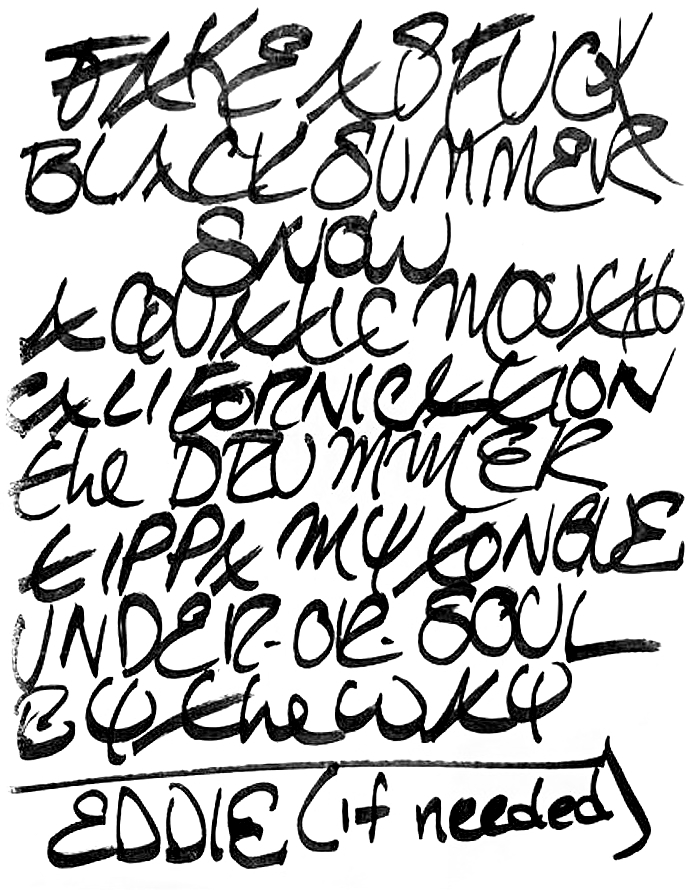 FAKE AS FUCK
BLACK SUMMER
SNOW
AQUATIC MOUTH
CALIFORNICATION
the DRUMMER
TIPPA MY TONGUE
UNDER - OR - SOUL
BY the WAY
EDDIE (if needed)